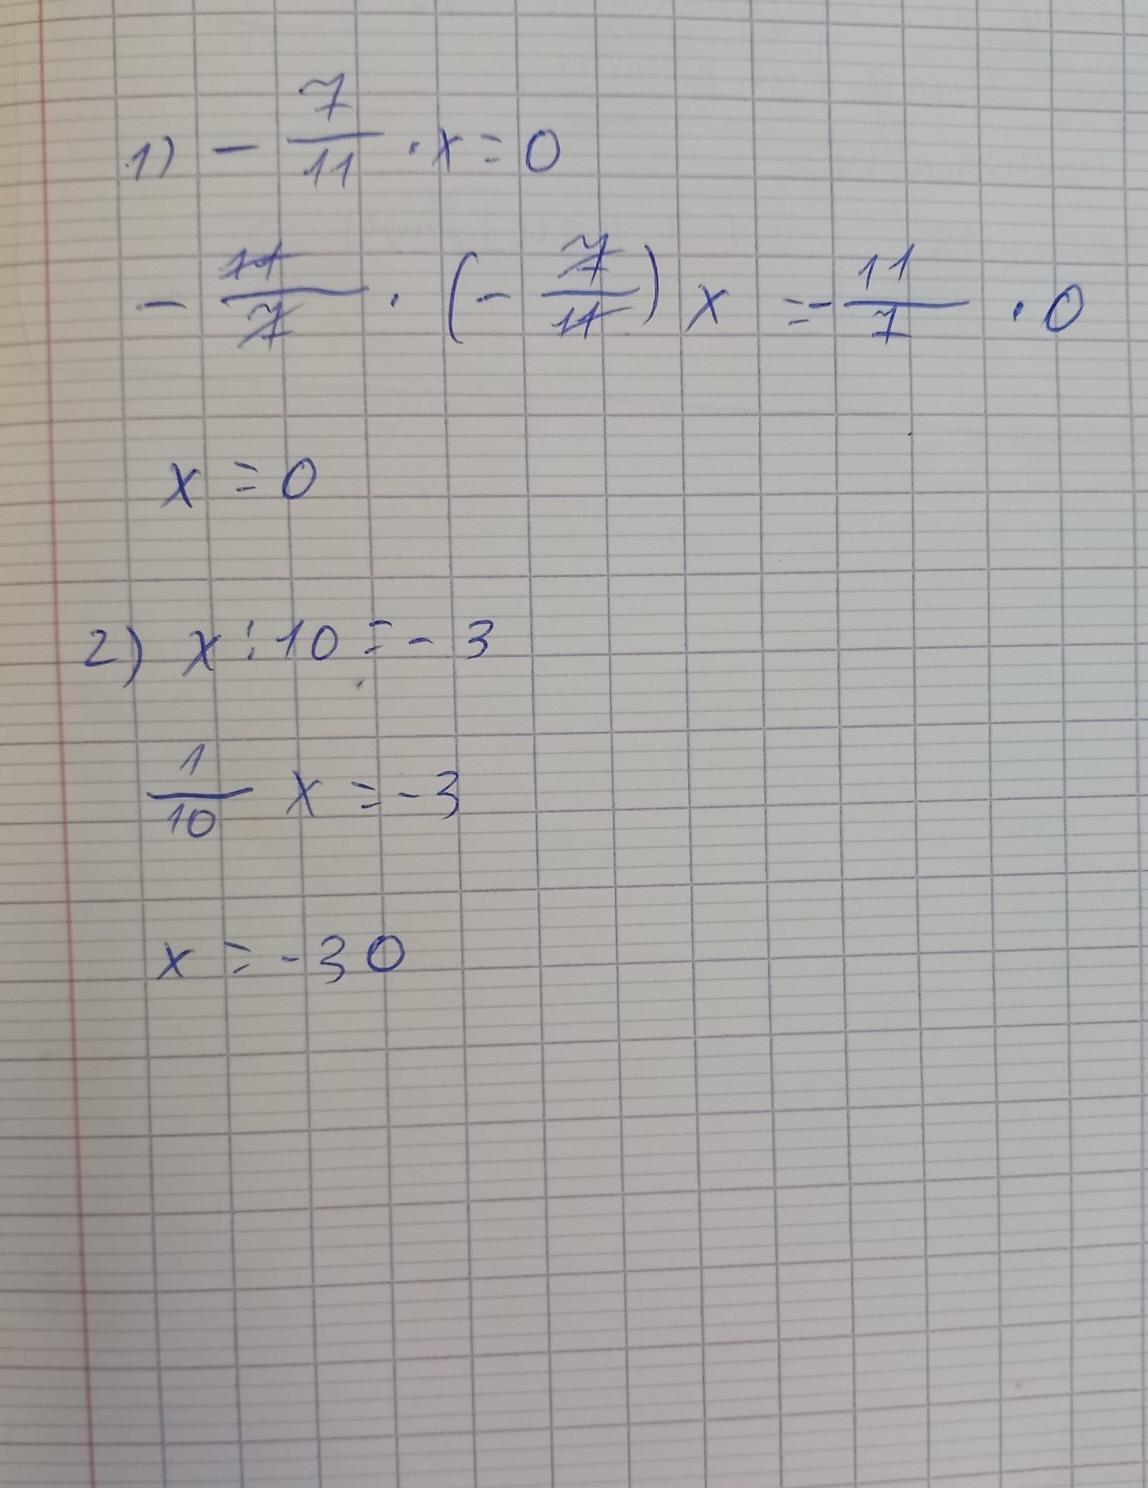 1) - 7/11 · x = 0
- 11/7 · (- 7/11) x = - 11/7 · 0
x = 0
2) x : 10 = - 3
1/10 x = -3
x = -30